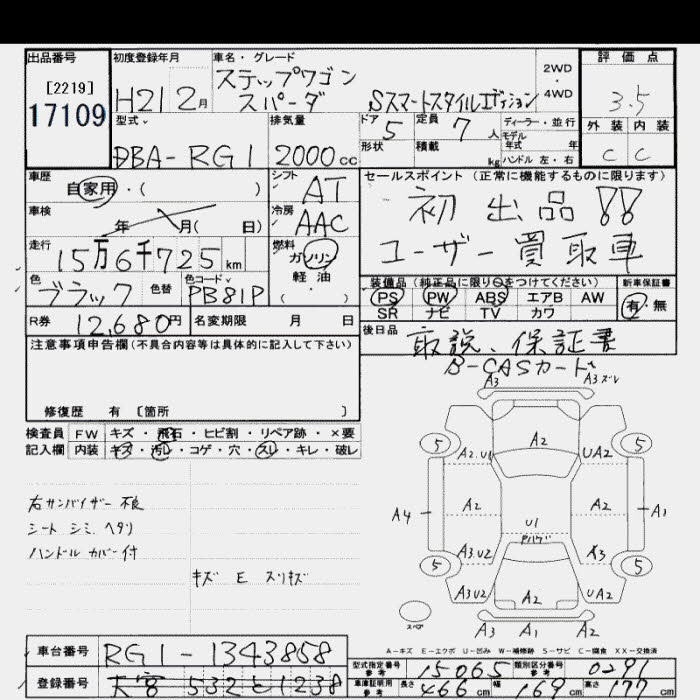 出品番号 初度登録年月 車名・グレード 評価点
[2219] ステップワゴン 2WD
17109 H21 2月 スパーダ Sスマートスタイルエディション 4WD 3.5
型式 排気量 ドア 定員 ディーラー・並行 外装 内装
DBA-RG1 2000cc 5 7人 モデル年式 年
形状 積載 kg ハンドル 左・右 C C
車歴 シフト セールスポイント (正常に機能するものに限ります)
自家用・( ) AT 初出品!!
車検 年 月( 日) 冷房 AAC
走行 15万6千725km 燃料 ガソリン ユーザー買取車
色 色替 色コード 軽油 装備品 (純正品に限り○をつけてください) 新車保証書
ブラック PB81P ( ) PS PW ABS エアB AW 有・無
R券 12,680円 名変期限 月 日 SR ナビ TV カワ
注意事項申告欄 (不具合内容等は具体的に記入して下さい) 後日品 取説、保証書
B-CASカード
修復歴 有 [箇所 ]
検査員 FW キズ・飛石・ヒビ割・リペア跡・×要
記入欄 内装 キズ・汚レ・コゲ・穴・スレ・キレ・破レ
右サンバイザー不良
シート シミ ヘタリ
ハンドルカバー付
キズ E スリキズ
A3 A3ズレ
5 A2 5
A2.U1 UA2
A4 A2 A2 A1
U1
A3U2
5 5
A3U2 A2 UA2
スペア A3 A1 A2
A-キズ E-エクボ U-凹み W-補修跡 S-サビ C-腐食 XX-交換済
車台番号 RG1-1343858 型式指定番号 参考 15065 類別区分番号 参考 0291
登録番号 大宮 532 と 1238 車庫証明用 参考 長さ 466cm 幅 169cm 高さ 177cm